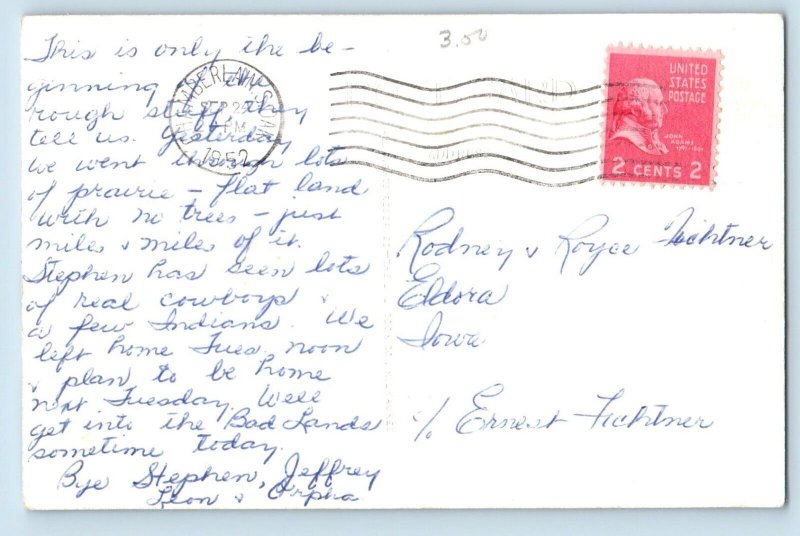 This is only the be-
ginning of the
rough stuff, they
tell us. Yesterday
we went through lots
of prairie - flat land
with no trees - just
miles & miles of it.
Stephen has seen lots
of real cowboys &
a few Indians. We
left home Tues. noon
& plan to be home
next Tuesday. Well
get into the Bad Lands
sometime today.
Bye Stephen, Jeffrey
Leon & Orpha
3.50
CHAMBERLAIN S. DAK.
SEP 2
PM
1952
UNITED
STATES
POSTAGE
JOHN
ADAMS
1797-1801
2 CENTS 2
Rodney & Royce Fichtner
Eldora
Iowa
c/o Ernest Fichtner